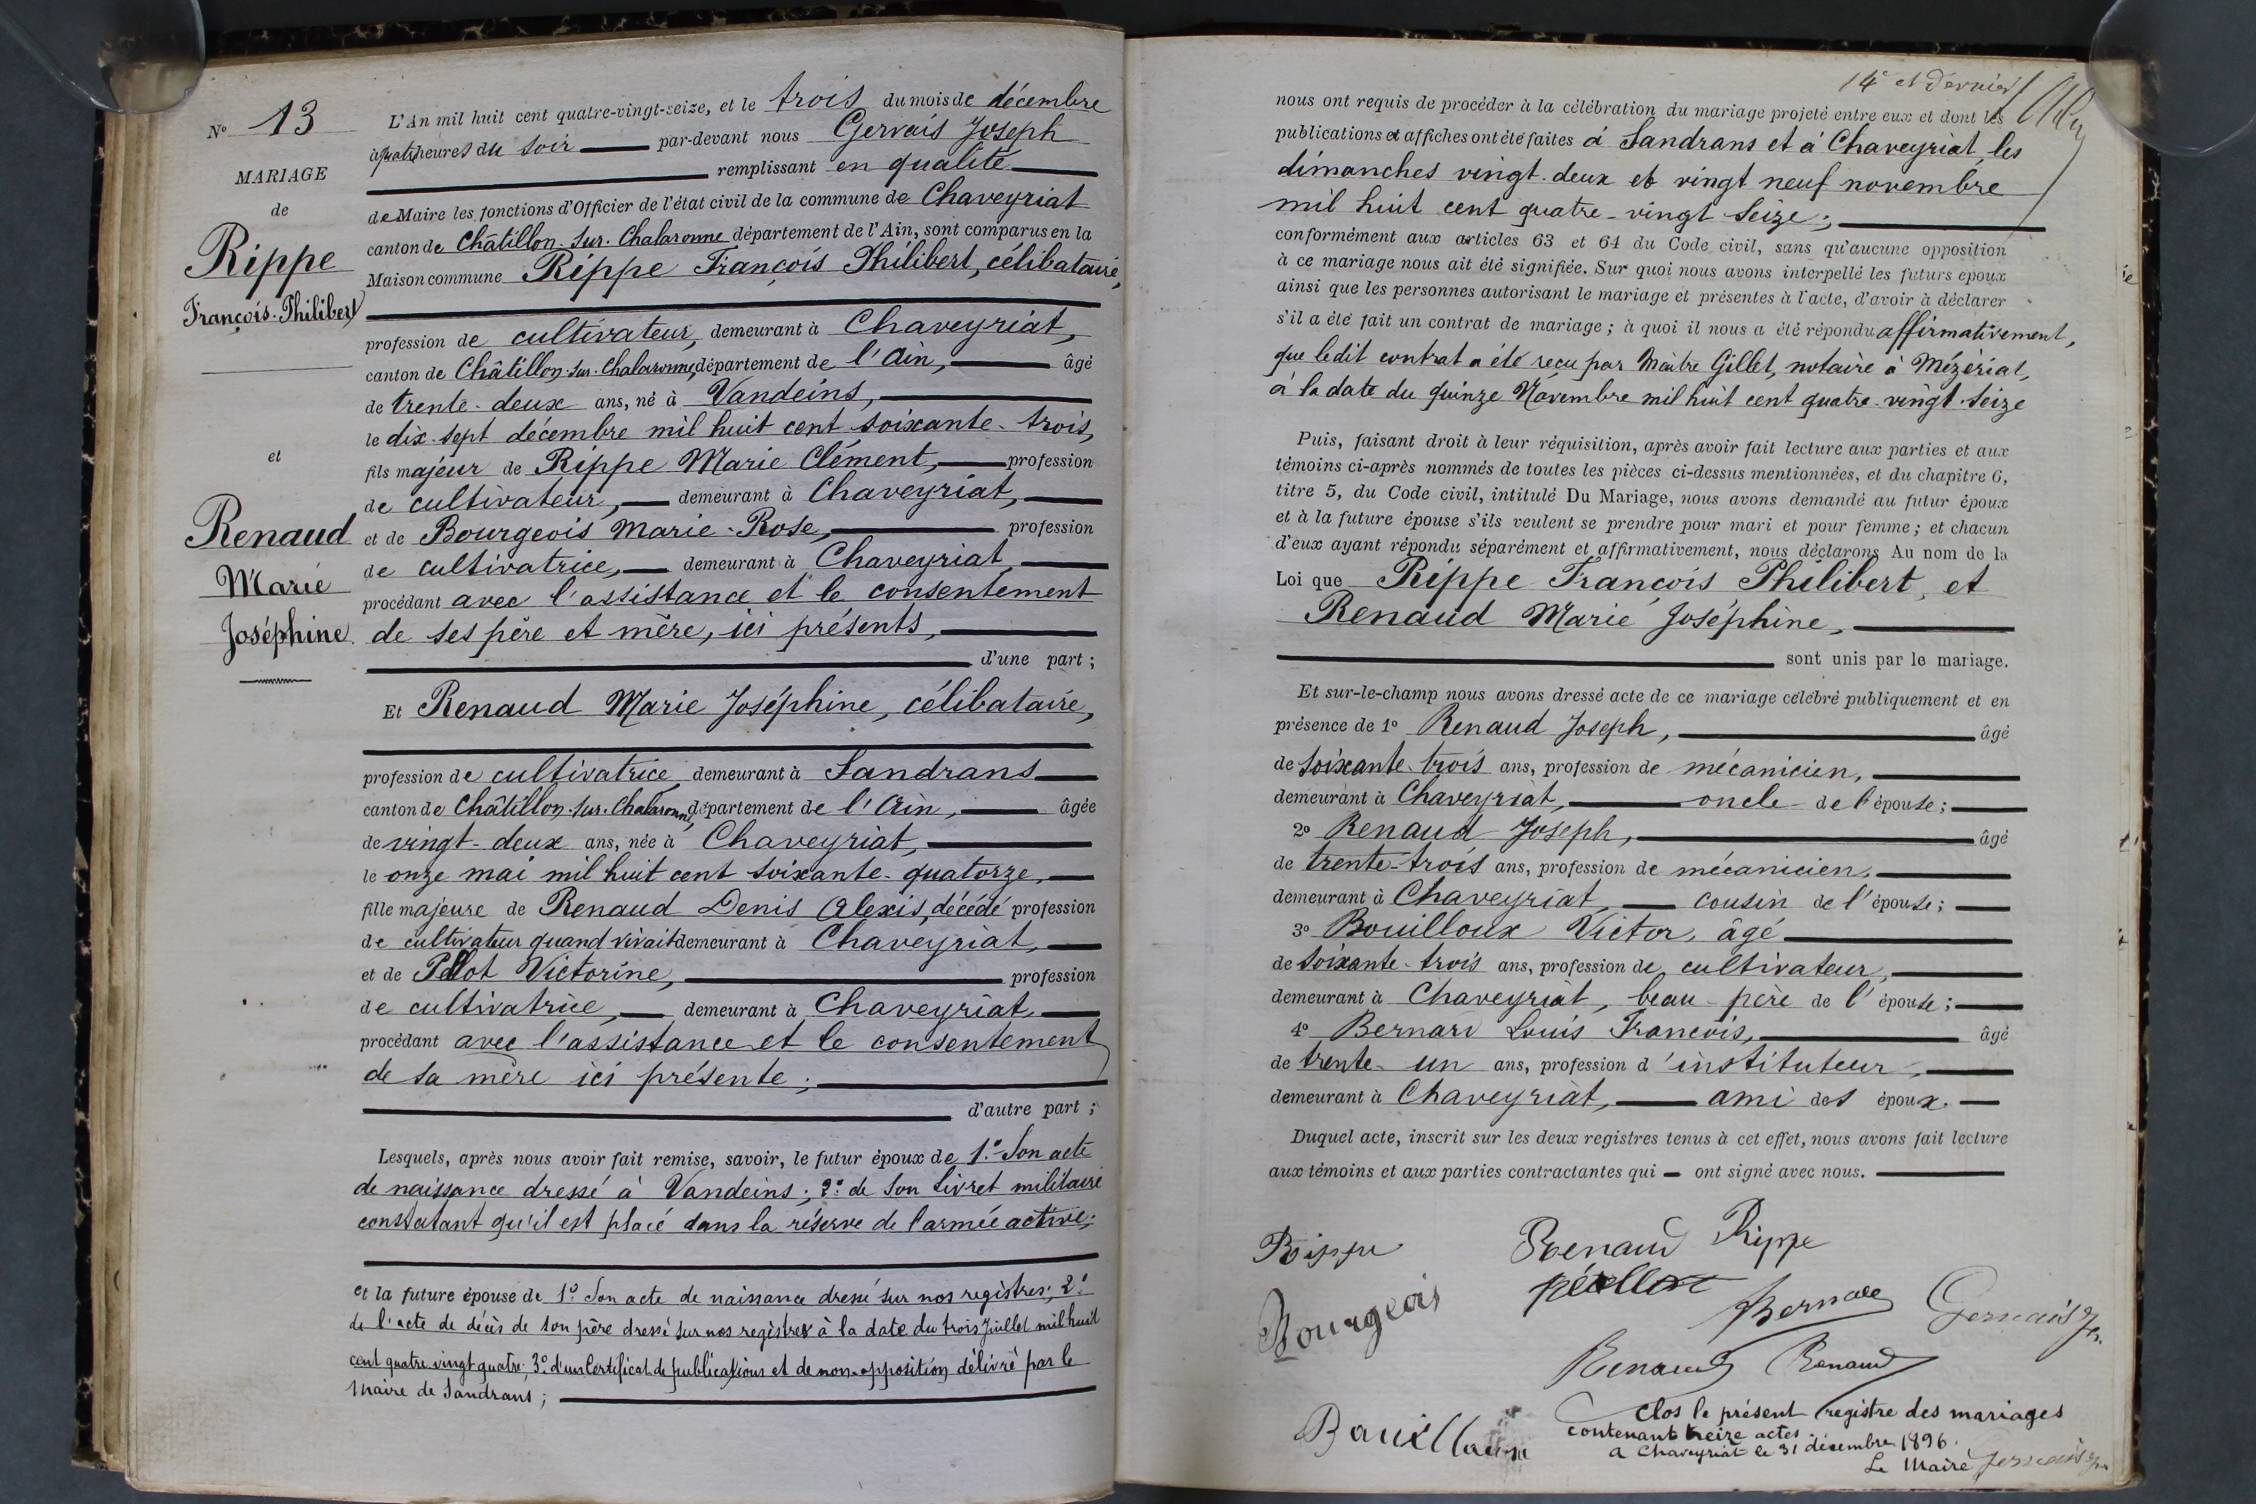 Nº 13
MARIAGE
de
Rippe
François-Philibert
et
Renaud
Marie
Joséphine
L'An mil huit cent quatre-vingt-seize, et le trois du mois de décembre
à quatre heures du soir par-devant nous Gervais Joseph
remplissant en qualité
de Maire les fonctions d'Officier de l'état civil de la commune de Chaveyriat
canton de Châtillon-sur-Chalaronne département de l'Ain, sont comparus en la
Maison commune Rippe François Philibert, célibataire,
profession de cultivateur, demeurant à Chaveyriat,
canton de Châtillon-sur-Chalaronne, département de l'Ain, âgé
de trente-deux ans, né à Vandeins,
le dix-sept décembre mil huit cent soixante-trois,
fils majeur de Rippe Marie Clément, profession
de cultivateur, demeurant à Chaveyriat,
et de Bourgeois Marie-Rose, profession
de cultivatrice, demeurant à Chaveyriat,
procédant avec l'assistance et le consentement
de ses père et mère, ici présents,
d'une part ;
Et Renaud Marie Joséphine, célibataire,
profession de cultivatrice demeurant à Sandrans
canton de Châtillon-sur-Chalaronne, département de l'Ain, âgée
de vingt-deux ans, née à Chaveyriat,
le onze mai mil huit cent soixante-quatorze,
fille majeure de Renaud Denis Alexis, décédé profession
de cultivateur quand vivait demeurant à Chaveyriat,
et de Victorine, profession
de cultivatrice, demeurant à Chaveyriat,
procédant avec l'assistance et le consentement
de sa mère ici présente ;
d'autre part ;
Lesquels, après nous avoir fait remise, savoir, le futur époux de 1º Son acte
de naissance dressé à Vandeins ; 2º de Son Livret militaire
constatant qu'il est placé dans la réserve de l'armée active ;
et la future épouse de 1º Son acte de naissance dressé sur nos registres ; 2º
de l'acte de décès de son père dressé sur nos registres à la date du trois Juillet mil huit
cent quatre vingt quatre ; 3º d'un Certificat de publications et de non-opposition délivré par le
Maire de Sandrans ;
14e et dernier
nous ont requis de procéder à la célébration du mariage projeté entre eux et dont les
publications et affiches ont été faites à Sandrans et à Chaveyriat les
dimanches vingt-deux et vingt neuf novembre
mil huit cent quatre-vingt seize ;
conformément aux articles 63 et 64 du Code civil, sans qu'aucune opposition
à ce mariage nous ait été signifiée. Sur quoi nous avons interpellé les futurs époux
ainsi que les personnes autorisant le mariage et présentes à l'acte, d'avoir à déclarer
s'il a été fait un contrat de mariage ; à quoi il nous a été répondu affirmativement,
que ledit contrat a été reçu par Maître Gillet, notaire à Mézériat,
à la date du quinze Novembre mil huit cent quatre-vingt-seize
Puis, faisant droit à leur réquisition, après avoir fait lecture aux parties et aux
témoins ci-après nommés de toutes les pièces ci-dessus mentionnées, et du chapitre 6,
titre 5, du Code civil, intitulé Du Mariage, nous avons demandé au futur époux
et à la future épouse s'ils veulent se prendre pour mari et pour femme ; et chacun
d'eux ayant répondu séparément et affirmativement, nous déclarons Au nom de la
Loi que Rippe François Philibert, et
Renaud Marie Joséphine,
sont unis par le mariage.
Et sur-le-champ nous avons dressé acte de ce mariage célébré publiquement et en
présence de 1º Renaud Joseph, âgé
de soixante-trois ans, profession de mécanicien,
demeurant à Chaveyriat, oncle de l'épouse ;
2º Renaud Joseph, âgé
de trente-trois ans, profession de mécanicien,
demeurant à Chaveyriat, cousin de l'épouse ;
3º Bouilloux Victor, âgé
de soixante-trois ans, profession de cultivateur,
demeurant à Chaveyriat, beau-père de l'épouse ;
4º Bernard Louis François, âgé
de trente-un ans, profession d'instituteur,
demeurant à Chaveyriat, ami des époux.
Duquel acte, inscrit sur les deux registres tenus à cet effet, nous avons fait lecture
aux témoins et aux parties contractantes qui ont signé avec nous.
Rippe Renaud Rippe
Bourgeois Bernard Gervais Jh
Renaud Renaud
Bouilloux
Clos le présent registre des mariages
contenant treize actes.
A Chaveyriat le 31 décembre 1896.
Le Maire Gervais Jh